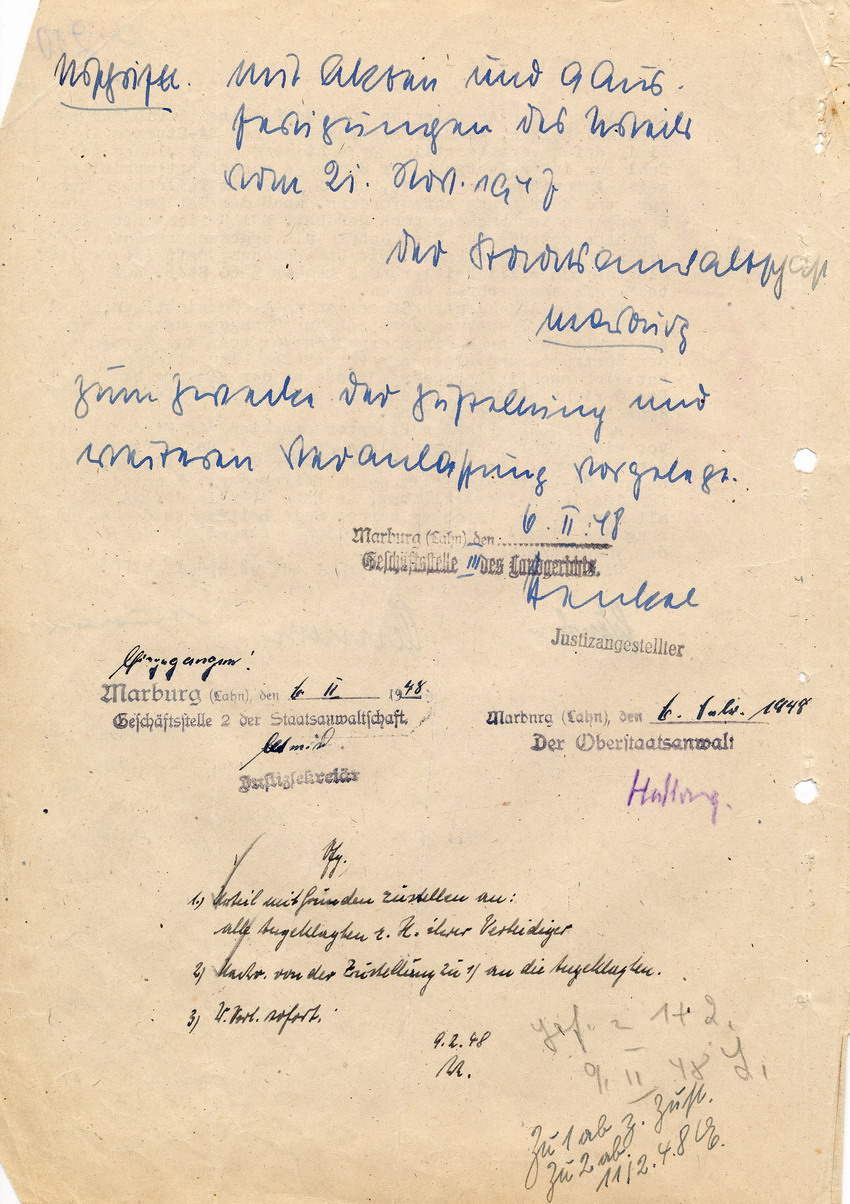 Urschriftl. mit Akten und 9 Aus-
fertigungen des Urteils
vom 21. Nov. 1947
der Staatsanwaltschaft
Marburg
zum Zwecke der Zustellung und
weiteren Veranlassung vorgelegt.
Marburg (Lahn), den 6. II. 48
Geschäftsstelle III des Landgerichts.
Henkel
Justizangestellter
Eingegangen!
Marburg (Lahn), den 6 II 1948
Geschäftsstelle 2 der Staatsanwaltschaft.
Justizsekretär
Marburg (Lahn), den 6. Febr. 1948
Der Oberstaatsanwalt
Vfg.
1.) Urteil mit Gründen zustellen an:
alle Angeklagten z. H. ihrer Verteidiger
2) Nachr. von der Zustellung zu 1) an die Angeklagten.
3) W. Vorl. sofort.
9.2.48
gef. = 1+2.
9. II 48
Zu 1 ab z. Zust.
Zu 2 ab.
11/2.48